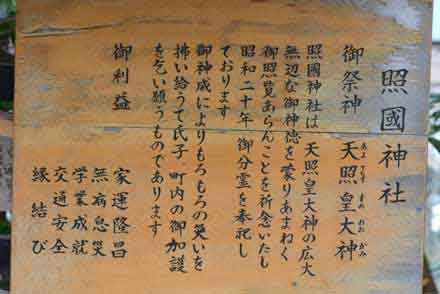 照國神社
御祭神 天照皇大神
あま てらす すめ おお かみ
照國神社は 天照皇大神の広大
無辺な御神徳を蒙りあまねく
御照覧あらんことを祈念いたし
昭和二十年 御分霊を奉祀し
ております
御神威によりもろもろの災いを
拂い給うて氏子 町内の御加護
を乞い願うものであります
御利益
家運隆昌
無病息災
学業成就
交通安全
縁結び